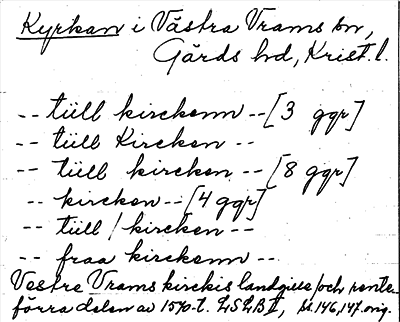 Kyrkan i Västra Vrams sn,
Gärds hd, Krist. l.
-- tüll kirckenn -- [3 ggr]
-- tüll Kircken --
-- tüll kircken -- [8 ggr]
-- kircken -- [4 ggr]
-- tüll / kircken --
-- fraa kirckenn --
Vestre Vrams kirckis landgille / och rente
förra delen av 1570-t. LSLB II, s. 146, 147. orig.